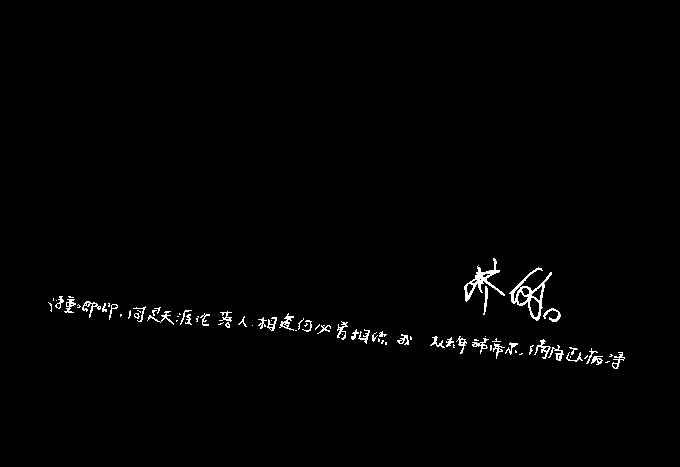 语重唧唧,同是天涯沦落人.相逢何必曾相识.我从去年辞帝京,谪居卧病浔